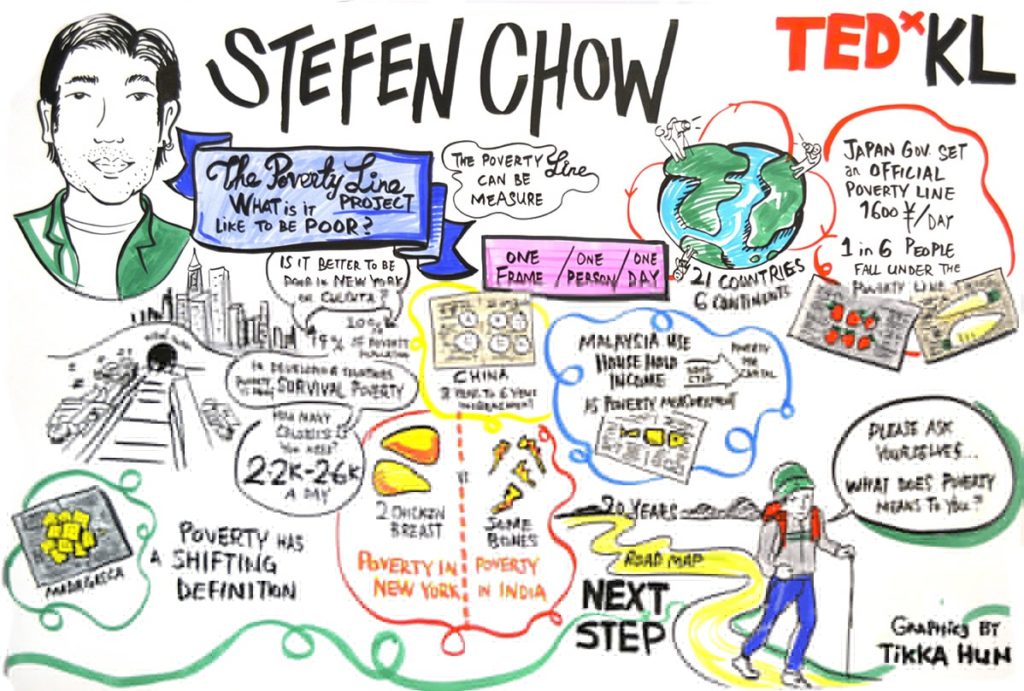 STEFEN CHOW
TEDxKL
The Poverty Line
PROJECT
WHAT is it
LIKE TO BE POOR?
THE POVERTY Line
CAN BE
MEASURE
ONE FRAME / ONE PERSON / ONE DAY
21 COUNTRIES
6 CONTINENTS
JAPAN GOV. SET
an OFFICIAL
POVERTY LINE
1600 ¥/DAY
1 in 6 PEOPLE
FALL UNDER THE
POVERTY LINE
IS IT BETTER TO BE
POOR IN NEW YORK
OR
OF
IN DEVELOPING COUNTRIES
SURVIVAL POVERTY
HOW MANY
YOU NEED?
2.2K-26K
A DAY
CHINA
MALAYSIA USE
HOUSE HOLD
INCOME
POVERTY
PER
CAPITAL
AS POVERTY MEASUREMENT
2 CHICKEN
BREAST
VS
SOME
BONES
POVERTY IN
NEW YORK
POVERTY
IN INDIA
MADAGASCA
POVERTY HAS
A SHIFTING
DEFINITION
20 YEARS
ROAD MAP
NEXT
STEP
PLEASE ASK
YOURSELVES...
WHAT DOES POVERTY
MEANS TO YOU?
GRAPHICS BY
TIKKA HUN